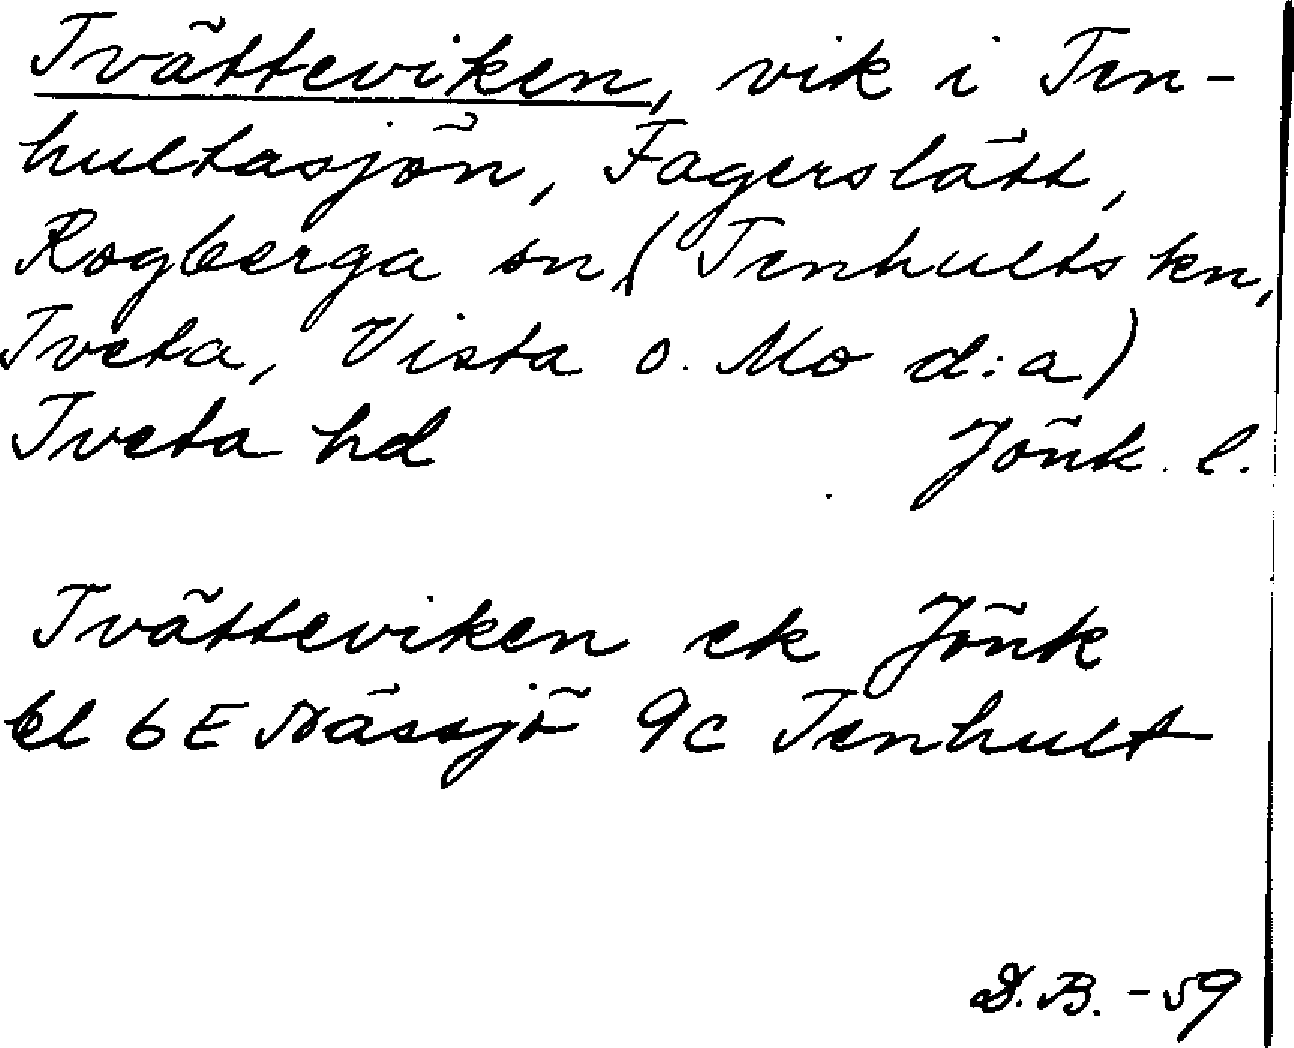 Tvätteviken, vik i Ten-
hultasjön, Fagerslätt,
Rogberga sn, (Tenhults kn,
Tveta, Vista o. Mo d:a)
Tveta hd Jönk. l.
Tvätteviken ek Jönk
bl 6E Nässjö 9c Tenhult
D.B. -59